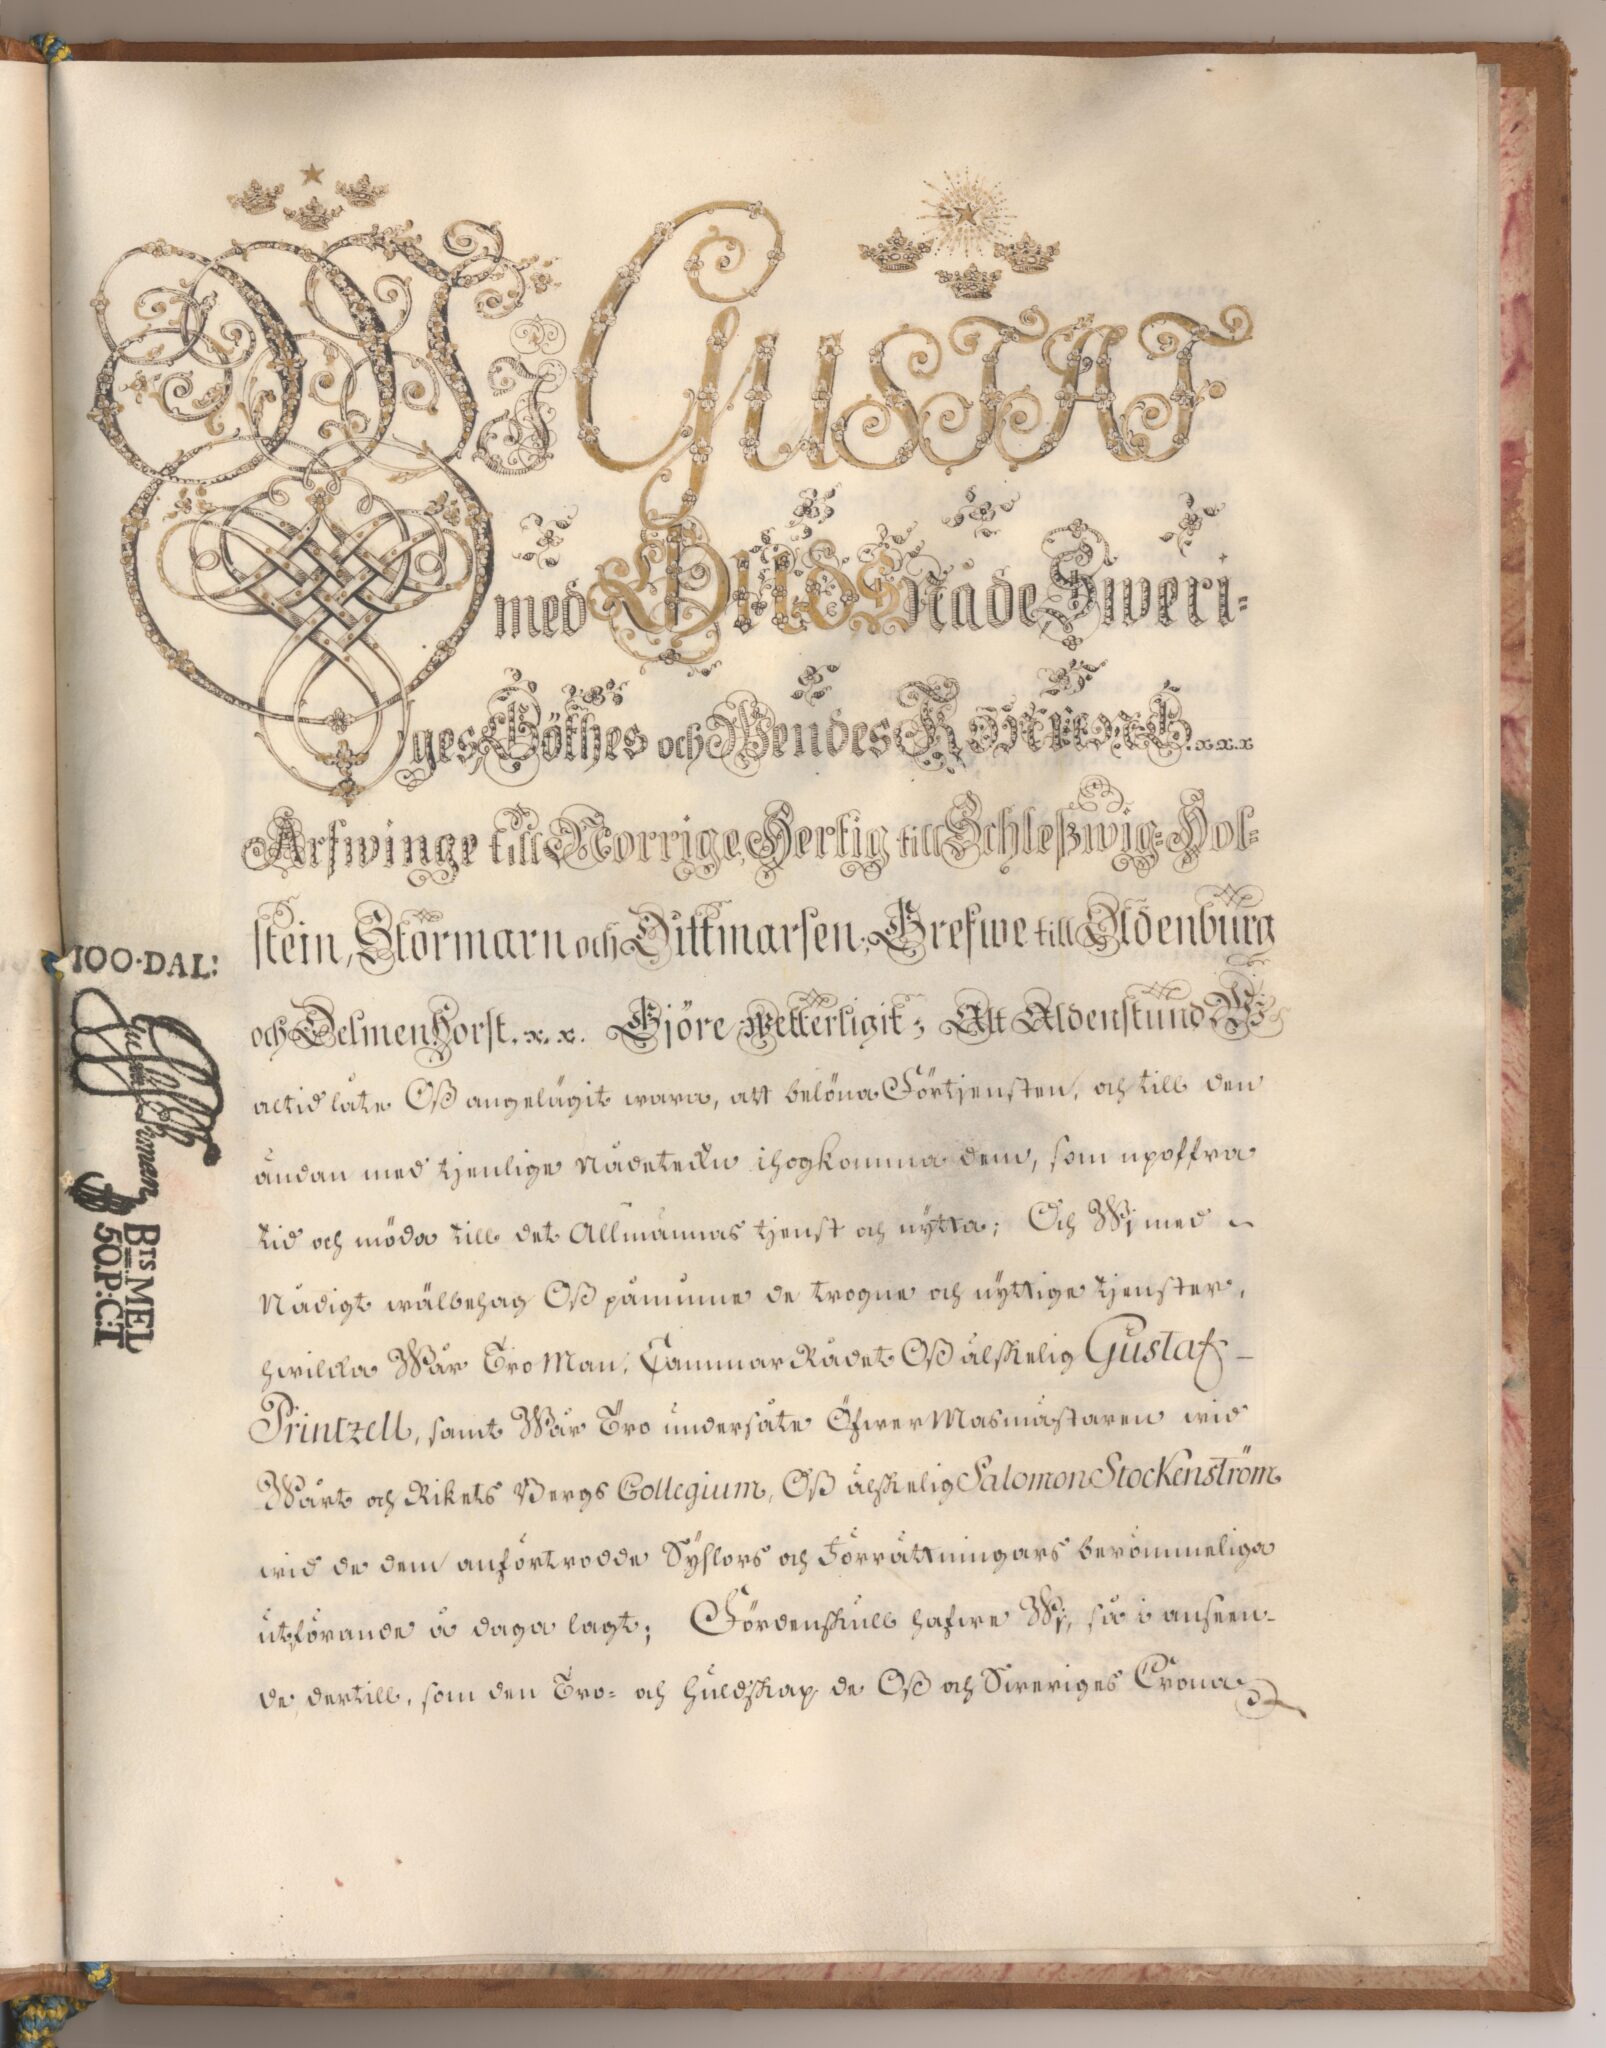 WJ GUSTAF
med GUds Nåde Sweri=
ges, Göthes och Wendes KONUNG. x.x.x
Arfwinge till Norrige, Hertig till Schleßwig= Hol=
stein, Stormarn och Dittmarsen; Grefwe till Oldenburg
och DelmenHorst. x. x. Gjöre wetterligit; Att Aldenstund Wj
altid låte Oß angelägit wara, att belöna Förtjensten, och till den
ändan med tjenlige Nådetekn ihogkomma dem, som upoffra
tid och möda till det Allmännas tjenst och nÿtta; Och Wj med
Nådigt wälbehag Oß påminne de trogne och nÿttige tjenster,
hwilcka Wår Tro Man, CammarRådet Oß älskelig Gustaf
Printzell, samt Wår Tro undersåte ÖfwerMasmästaren wid
Wårt och Rikets Bergs Collegium, Oß älskelig Salomon Stockenström
wid de dem anförtrodde Sÿslors och Förrättningars berömmeliga
utförande å daga lagt; Fördenskull hafwe Wj, så i anseen-
de dertill, som den Tro= och Huldskap de Oß och Sweriges Crona
100·DAL:
BTS MEL
50.P:C:T